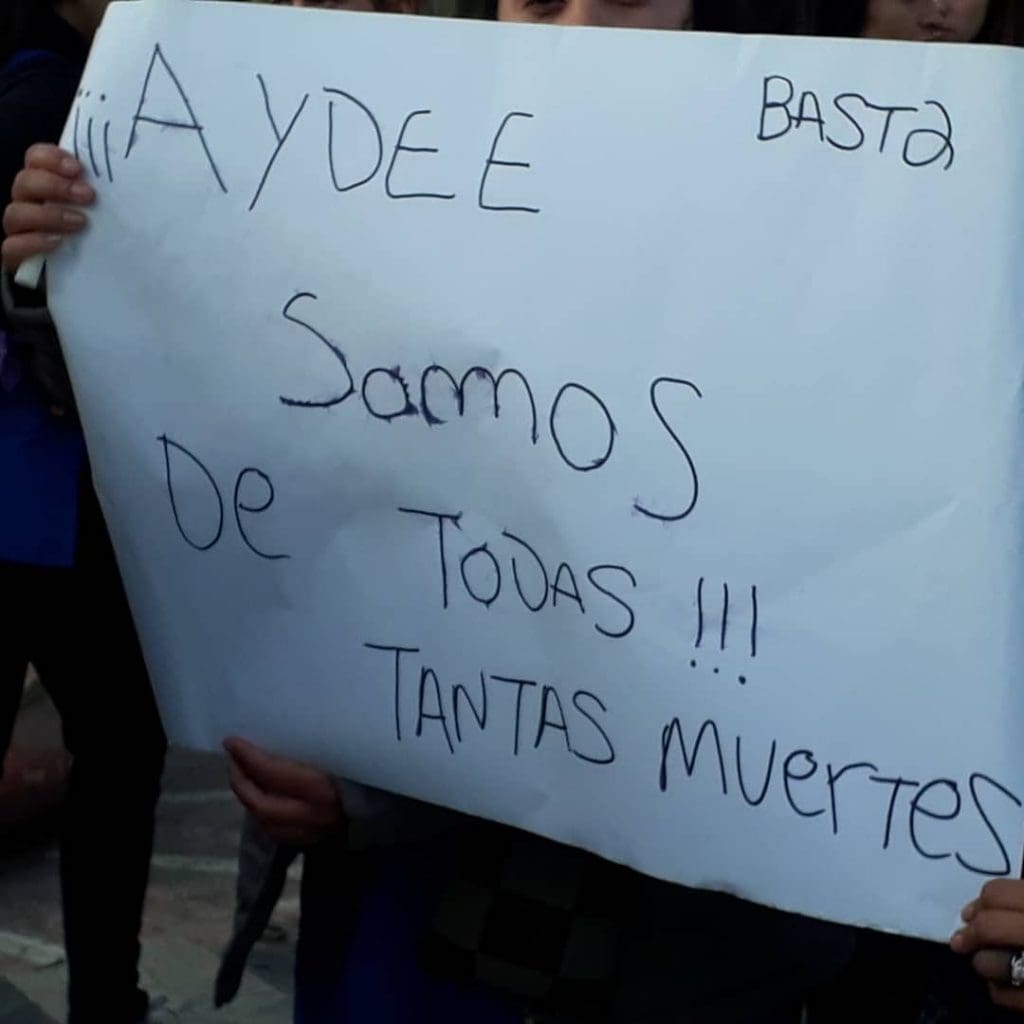 ¡¡¡AYDEE BASTa
Somos
De TODAS!!!
TANTAS muerTes